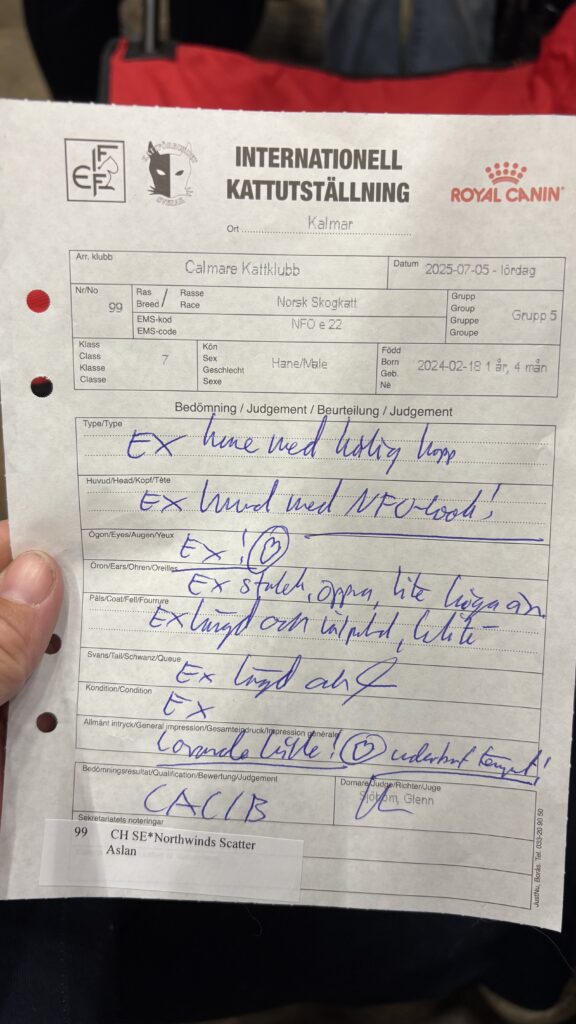 FIFe
INTERNATIONELL
KATTUTSTÄLLNING
ROYAL CANIN
Ort Kalmar
Arr. klubb
Calmare Kattklubb
Datum 2025-07-05 - lördag
Nr/No 99
Ras / Rasse
Breed / Race
Norsk Skogkatt
EMS-kod
EMS-code
NFO e 22
Grupp
Group
Gruppe
Groupe
Grupp 5
Klass
Class
Klasse
Classe
7
Kön
Sex
Geschlecht
Sexe
Hane/Male
Född
Born
Geb.
Né
2024-02-18 1 år, 4 mån
Bedömning / Judgement / Beurteilung / Judgement
Type/Type
EX hane med härlig kropp
Huvud/Head/Kopf/Tête
EX huvud med NFO-look!
Ögon/Eyes/Augen/Yeux
Ex!
Öron/Ears/Ohren/Oreilles
Ex storlek, öppna, lite höga än
Päls/Coat/Fell/Fourrure
Ex längd och
Svans/Tail/Schwanz/Queue
Ex längd och
Kondition/Condition
Ex
Allmänt intryck/General impression/Gesamteindruck/Impression générale
Lovande kille! underbart temp!
Bedömningsresultat/Qualification/Bewertung/Judgement
CACIB
Domare/Judge/Richter/Juge
Sjöbom, Glenn
Sekretariatets noteringar
99 CH SE*Northwinds Scatter
Aslan
JustNu, Borås. Tel. 033-20 90 50